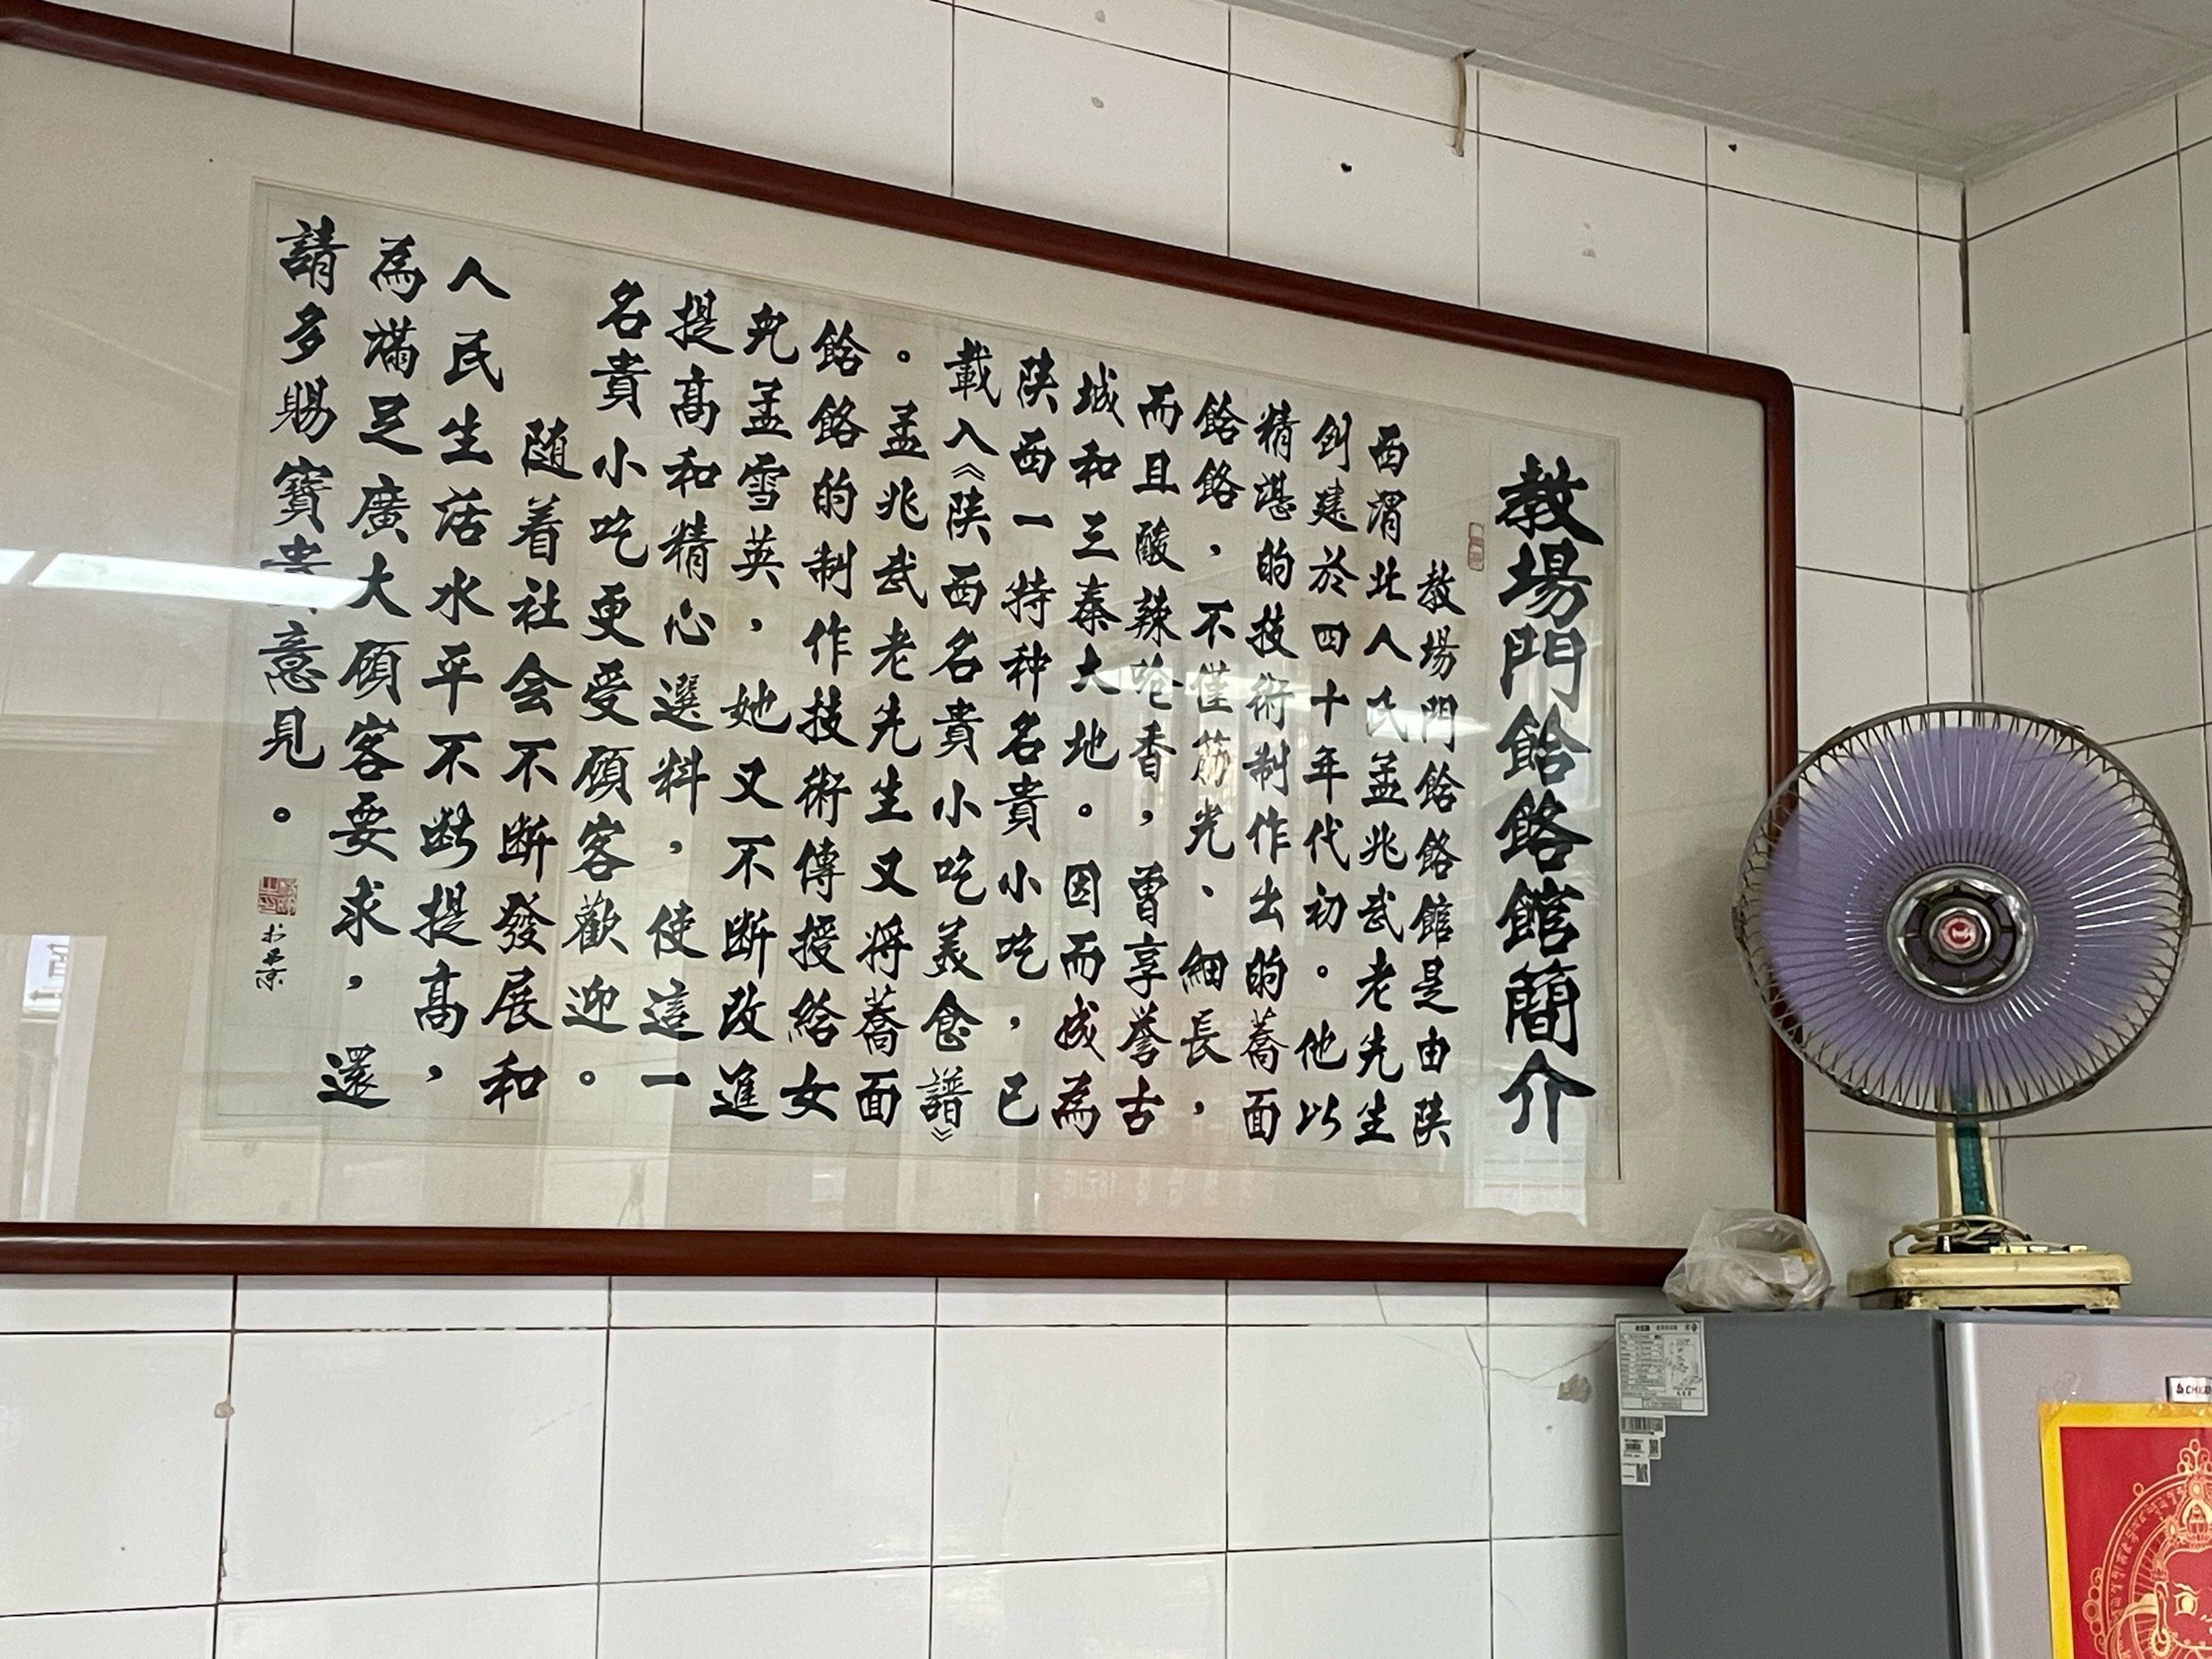 教場門餄餎館簡介
教場門餄餎館是由陕
西渭北人氏孟兆武老先生
創建於四十年代初。他以
精湛的技術制作出的蕎面
餄餎，不僅筋光、細長，
而且酸辣呛香，曾享誉古
城和三秦大地。因而成為
陕西一特种名貴小吃，已
載入《陕西名貴小吃美食譜》
。孟兆武老先生又将蕎面
餄餎的制作技術傳授給女
児孟雪英，她又不断改進
提高和精心選料，使這一
名貴小吃更受顾客歡迎。
随着社会不断發展和
人民生活水平不断提高，
為滿足廣大顾客要求，還
請多賜寶貴意見。